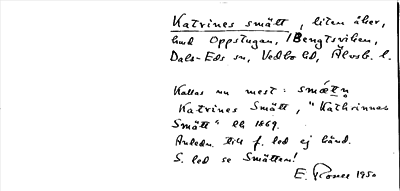 Katrines smått, liten åker,
hmd Oppstugan, Bengtsviken,
Dals-Eds sn, Vedbo hd, Älvsb. l.
Kallas nu mest: smǽtn
Katrines Smått, "Kathrinnas
Smått" lk 1869.
Anledn. till f. led ej känd.
S. led se Smätten!
E. Rosell 1950